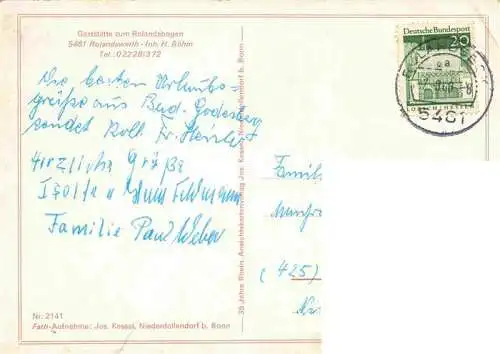 Gaststätte zum Rolandsbogen
5481 Rolandswerth - Inh. H. Böhm
Tel.: 02228/372
Die besten Urlaubs-
grüße aus Bad. Godesberg
sendet Rolf
Herzliche Grüße
Familie Paul Weber
Nr. 2141
Fach-Aufnahme: Jos. Kessel, Niederdollendorf b. Bonn
35 Jahre Rhein. Ansichtskartenverlag Jos. Kessel, Niederdollendorf b. Bonn
Deutsche Bundespost
20
LORSCH/HESSEN
5481
Famili
(425)